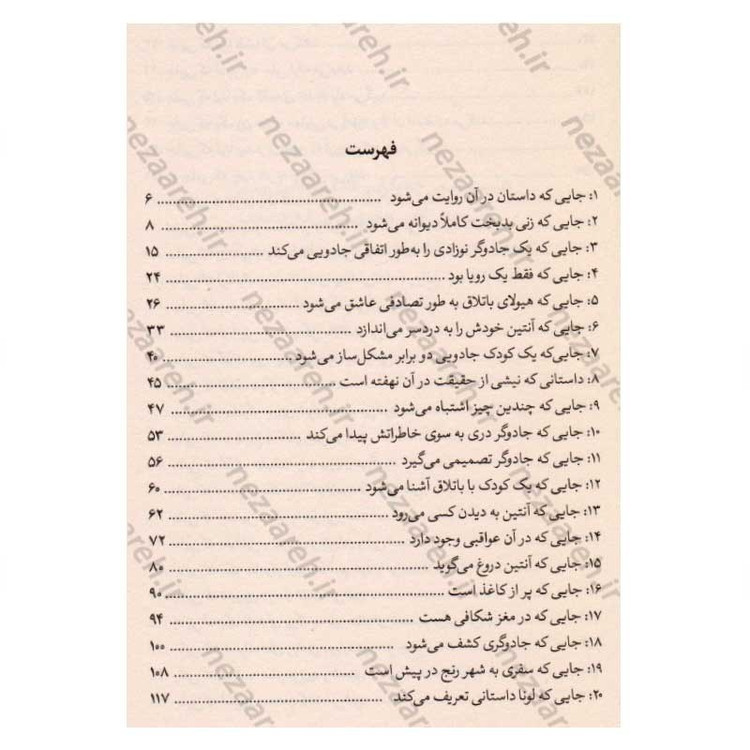 فهرست
۱: جایی که داستان در آن روایت می‌شود ........ ۶
۲: جایی که زنی بدبخت کاملاً دیوانه می‌شود ........ ۸
۳: جایی که یک جادوگر نوزادی را به‌طور اتفاقی جادویی می‌کند ........ ۱۵
۴: جایی که فقط یک رویا بود ........ ۲۴
۵: جایی که هیولای باتلاق به طور تصادفی عاشق می‌شود ........ ۲۶
۶: جایی که آنتین خودش را به دردسر می‌اندازد ........ ۳۳
۷: جایی‌که یک کودک جادویی دو برابر مشکل‌ساز می‌شود ........ ۴۰
۸: داستانی که نیشی از حقیقت در آن نهفته است ........ ۴۵
۹: جایی که چندین چیز اشتباه می‌شود ........ ۴۷
۱۰: جایی که جادوگر دری به سوی خاطراتش پیدا می‌کند ........ ۵۳
۱۱: جایی که جادوگر تصمیمی می‌گیرد ........ ۵۶
۱۲: جایی که یک کودک با باتلاق آشنا می‌شود ........ ۶۰
۱۳: جایی که آنتین به دیدن کسی می‌رود ........ ۶۲
۱۴: جایی که در آن عواقبی وجود دارد ........ ۷۲
۱۵: جایی که آنتین دروغ می‌گوید ........ ۸۰
۱۶: جایی که پر از کاغذ است ........ ۹۰
۱۷: جایی که در مغز شکافی هست ........ ۹۴
۱۸: جایی که جادوگری کشف می‌شود ........ ۱۰۰
۱۹: جایی که سفری به شهر رنج در پیش است ........ ۱۰۸
۲۰: جایی که لونا داستانی تعریف می‌کند ........ ۱۱۷
nezaareh.ir